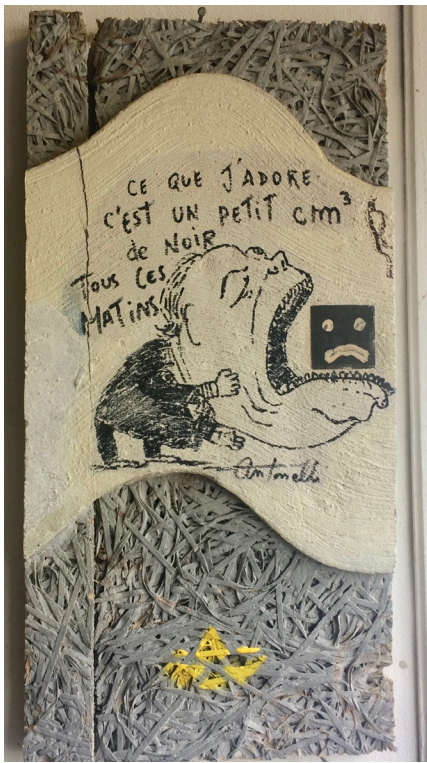 CE QUE J'ADORE
C'EST UN PETIT cm³
de NOIR
TOUS LES
MATINS
Antonelli